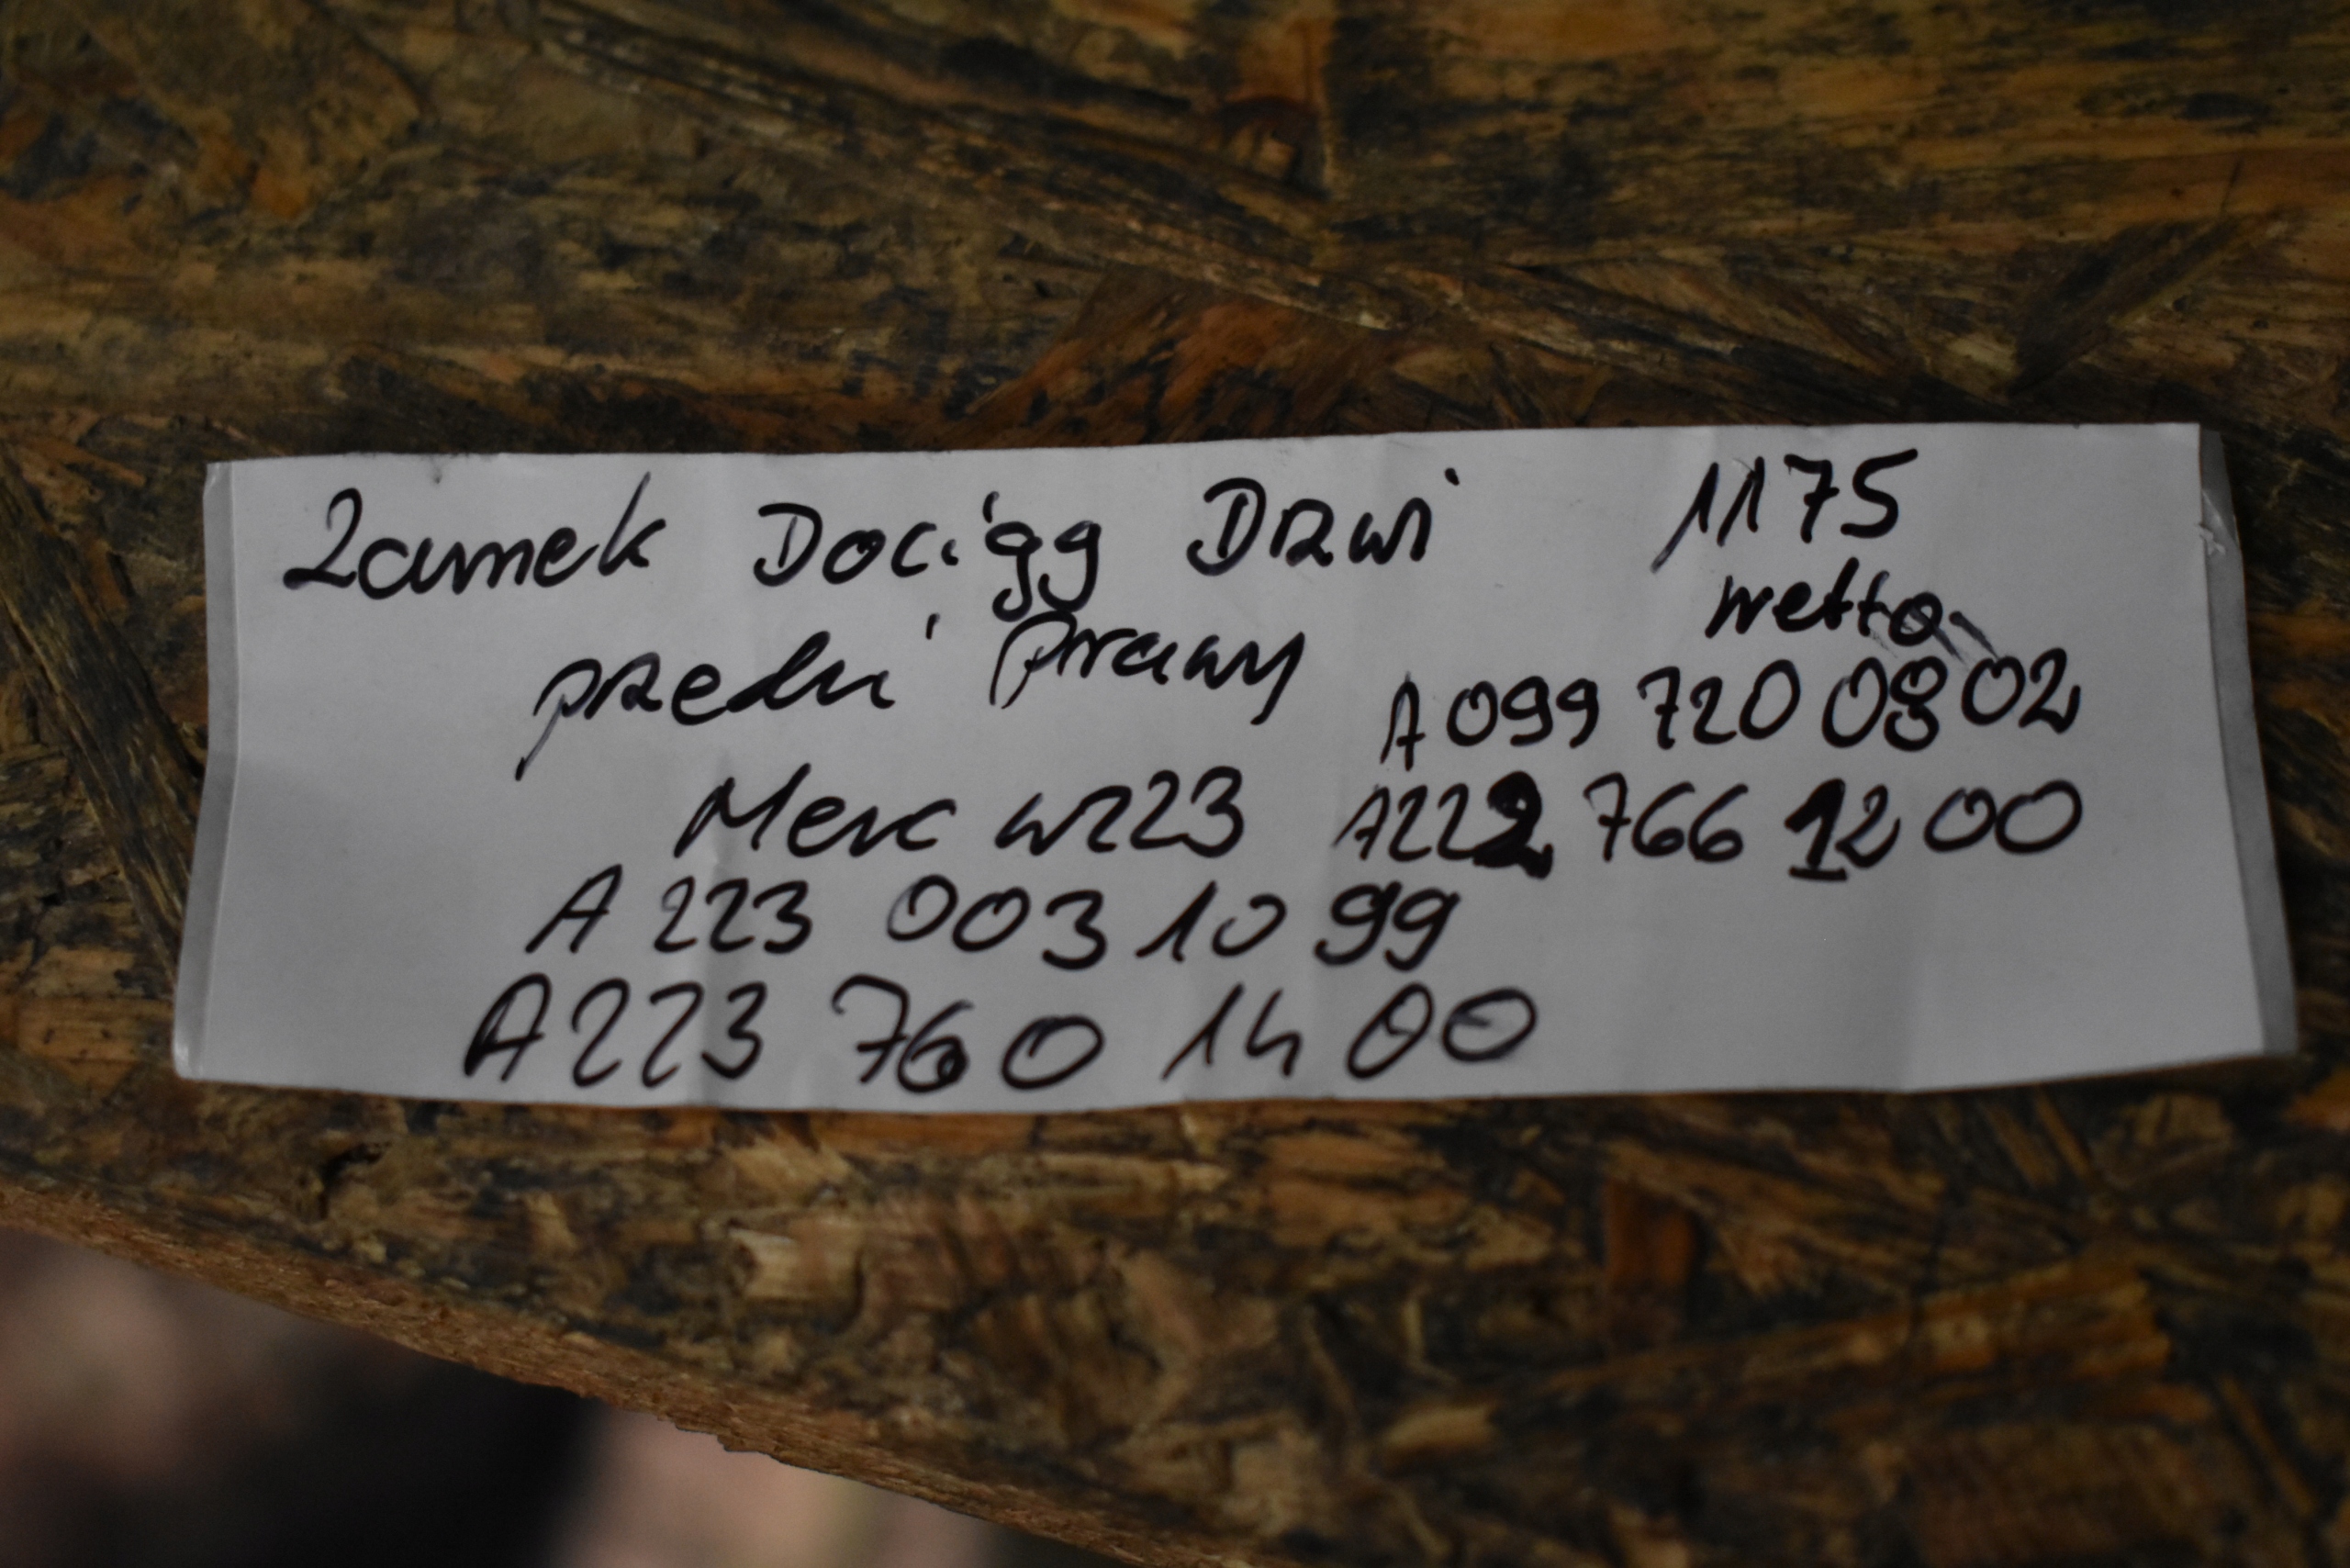 Zamek Dociąg Drzwi 1175
netto
przedni Prawy
A 099 720 08 02
Merc W223 A222 766 12 00
A 223 003 10 99
A 223 760 14 00